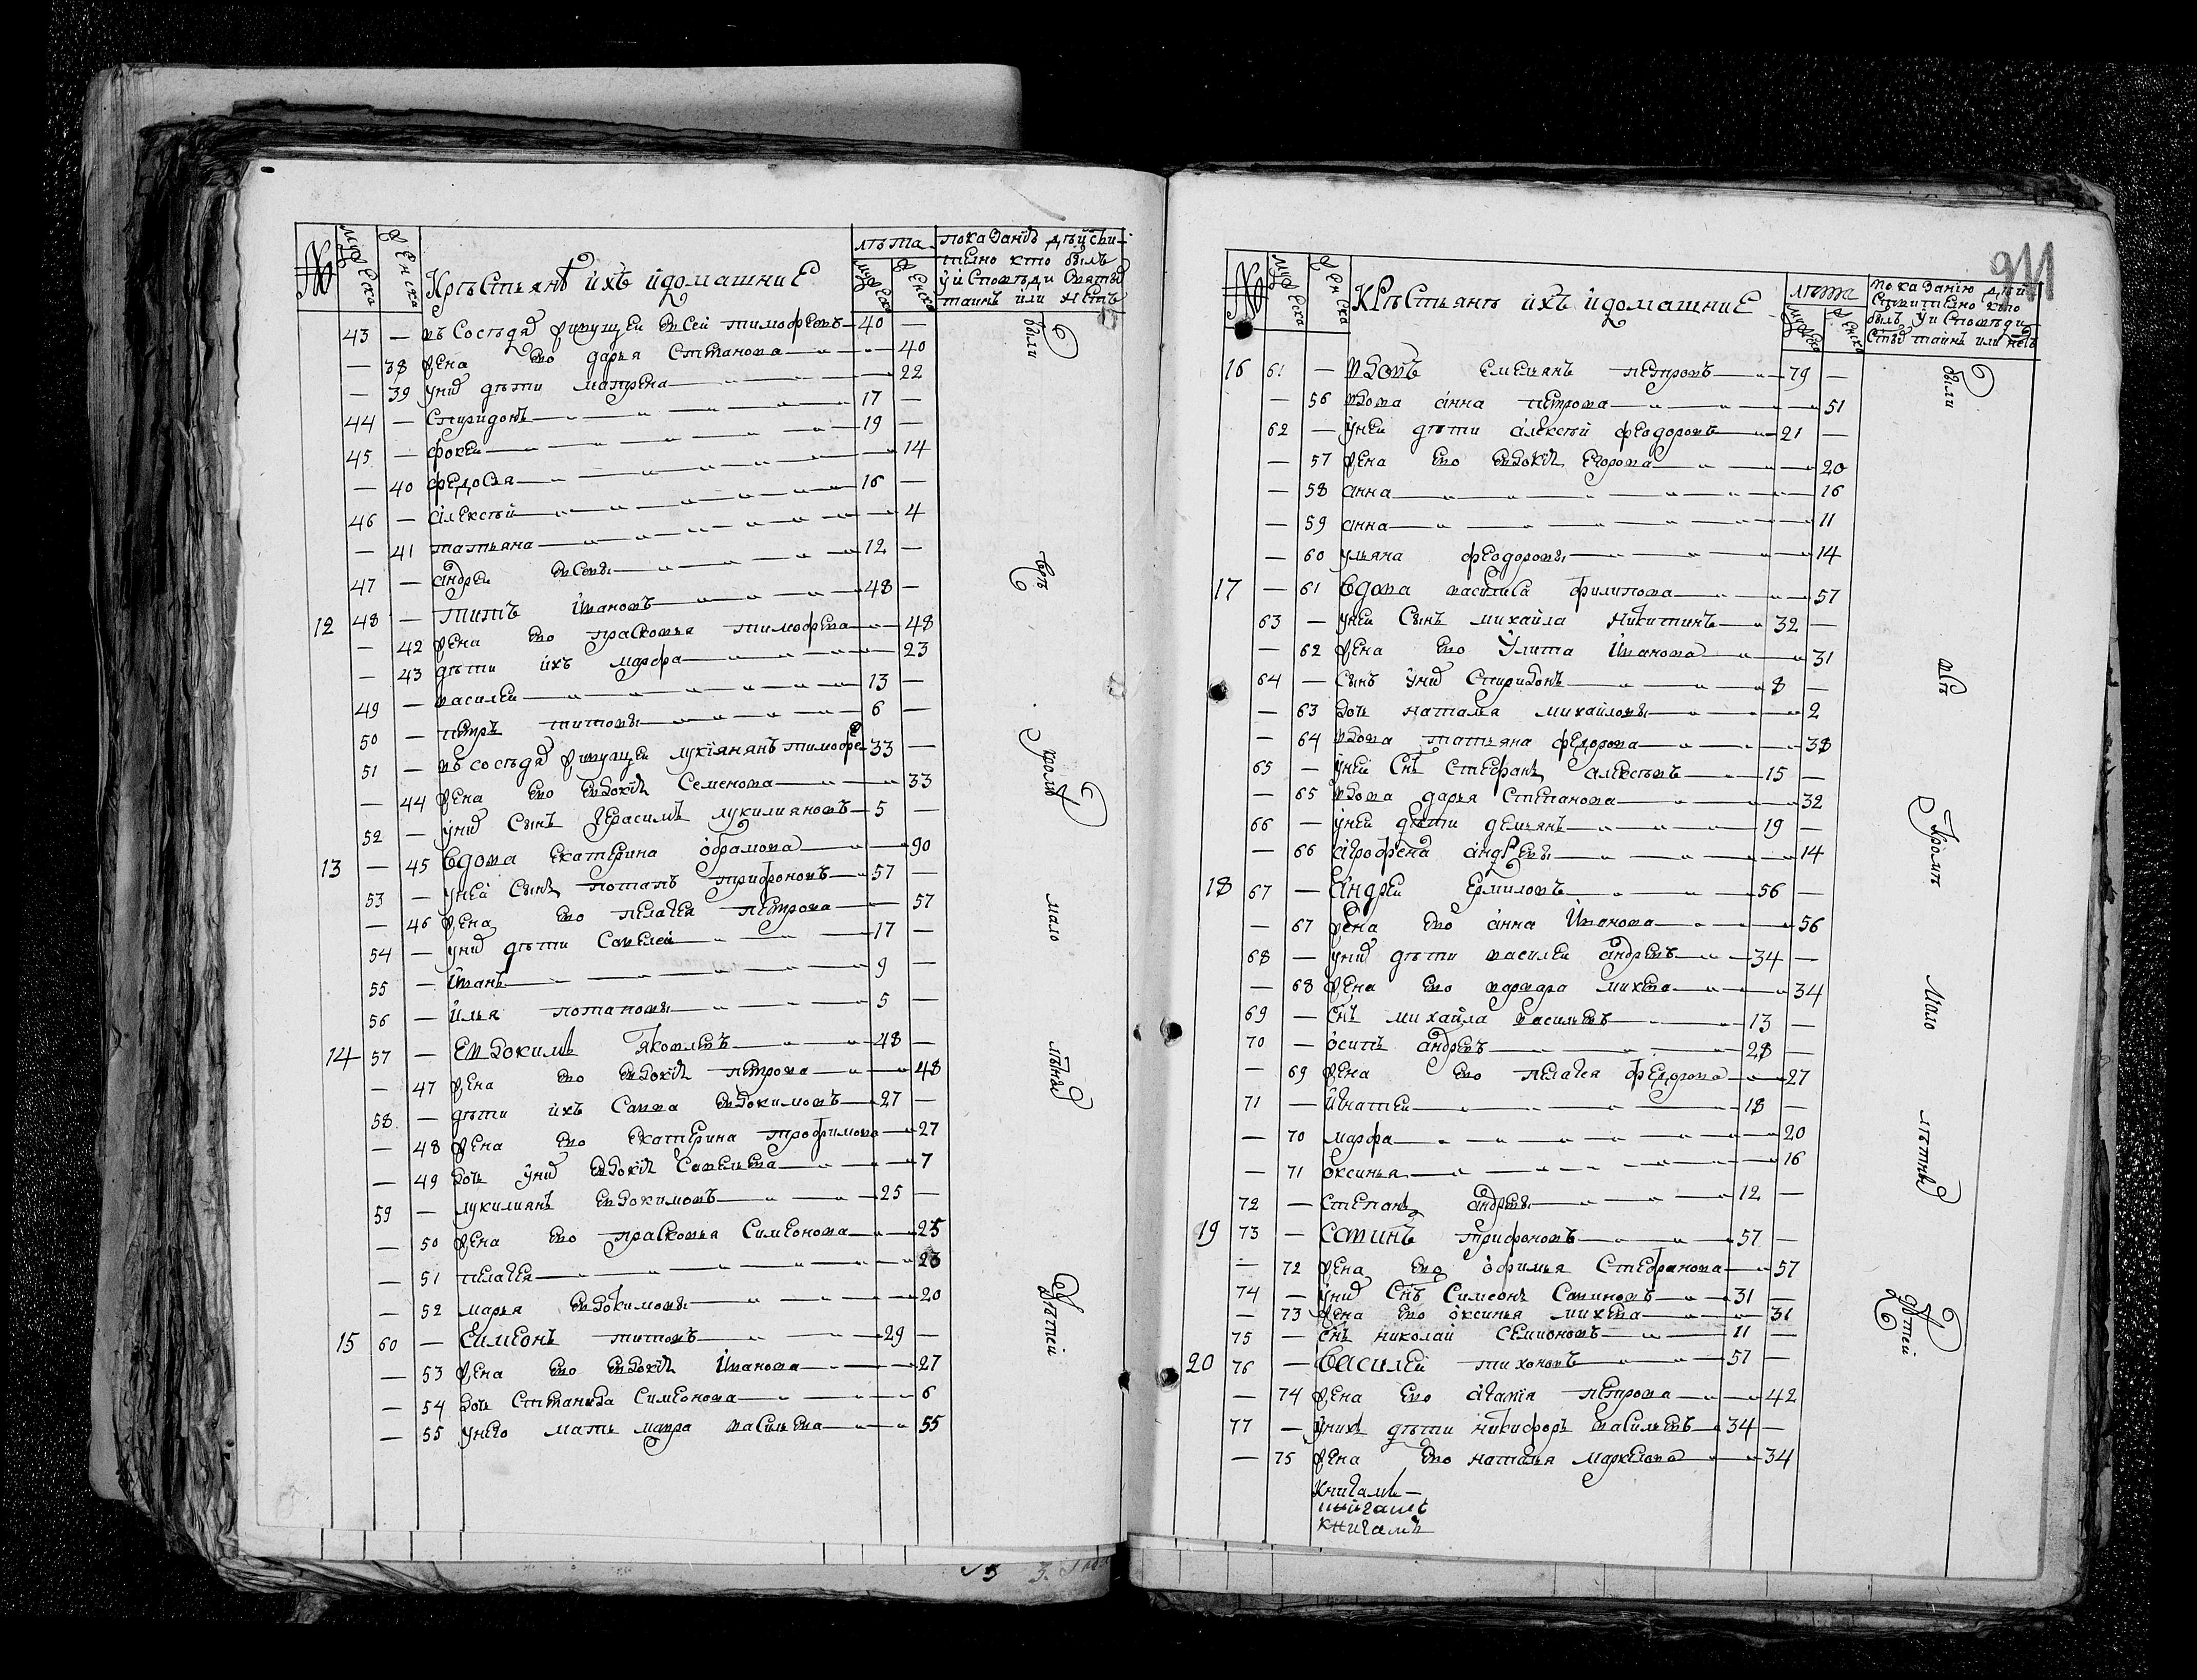 № муЖеска Женска Крѣстьянѣ ихъ идомашние лѣта муЖеска Женска
показанїѣ дѣйстви-
телно кто былъ
уисповѣди Святыхъ
таинъ или нѣтъ
43 — въ сосѣдяхъ живущей Евсей тимофѣевъ 40 —
— 38 Жена Ево дарья Степанова — 40
— 39 унихъ дѣти матрена — 22
44 — спиридонъ 17 —
45 — фокей 19 —
— 40 федосья — 14
46 — алексѣй 16 —
— 41 татьяна — 4
47 — андрей Евсевы 12 —
12 48 — титъ ивановъ 48 —
— 42 Жена Ево прасковья тимофева — 48
— 43 дѣти ихъ марфа — 23
49 — василей 13 —
50 — петръ титовы 6 —
51 — въ сосѣдяхъ живущей лукїянянъ тимофе 33 —
— 44 Жена Ево Евдокїя Семенова — 33
52 — унихъ сынъ герасимъ лукилияновъ 5 —
13 — 45 вдова екатерина обрамова — 90
53 — унея сынъ потапъ трифоновъ 57 —
— 46 Жена Ево пелагея петрова — 57
54 — унихъ дѣти Савелей 17 —
55 — иванъ 9 —
56 — илья потаповы 5 —
14 57 — Евдокимъ яковлевъ 48 —
— 47 Жена Ево Евдокїя петрова — 48
58 — дѣти ихъ Савва Евдокимовъ 27 —
— 48 Жена Ево екатерина трофимова — 27
— 49 дочь унихъ Евдокїя Савельева — 7
59 — лукилиянъ Евдокимовъ 25 —
— 50 Жена Ево прасковья Симеонова — 25
— 51 пелагея — 23
— 52 марья Евдокимовы — 20
15 60 — Симеонъ титовъ 29 —
— 53 Жена Ево Евдокїя Иванова — 27
— 54 дочь Степанида Симеонова — 6
— 55 унего мать мавра васильева — 55
были
всѣ
кромѣ
мало
лѣтныхъ
дѣтей
911
№ муЖеска Женска Крѣстьянѣ ихъ идомашние лѣта муЖеска Женска
показанию дѣй
ствително кто
былъ уисповѣди
Стыхъ таинъ или нетъ
16 61 — вдовъ емельянъ петровъ 79 —
— 56 вдова анна петрова — 51
62 — уней дѣти алексѣй феодоровъ 21 —
— 57 Жена Ево Евдокїя егорова — 20
— 58 анна — 16
— 59 анна — 11
— 60 ульяна феодоровы — 14
17 — 61 вдова василиса филипова — 57
63 — уней сынъ михайла никитинъ 32 —
— 62 Жена Ево Улита иванова — 31
64 — сынъ унихъ спиридонъ 8 —
— 63 дочь наталья михайловы — 2
— 64 вдова татьяна федорова — 38
65 — уней снъ стефанъ алексѣевъ 15 —
— 65 вдова дарья степанова — 32
66 — уней дѣти демьянъ 19 —
— 66 агрофена андревы — 14
18 67 — андрей ермиловъ 56 —
— 67 Жена Ево анна Иванова — 56
68 — унихъ дѣти василей андревъ 34 —
— 68 Жена Ево варвара михева — 34
69 — снъ михайла васильевъ 13 —
70 — осипъ андревъ 28 —
— 69 Жена Ево пелагея федорова — 27
71 — игнатей 18 —
— 70 марфа — 20
— 71 оксинья — 16
72 — степанъ андревы 12 —
19 73 — савинъ трифоновъ 57 —
— 72 Жена Ево офимья Стефанова — 57
74 — унихъ Снъ Симеонъ Савиновъ 31 —
— 73 Жена Ево оксинья михева — 31
75 — снъ николай семионовъ 11 —
20 76 — василей тихоновъ 57 —
— 74 Жена Ево агапїя петрова — 42
77 — унихъ дѣти никифоръ васильевъ 34 —
— 75 Жена Ево наталья маркелова — 34
книгамъ
книгамъ
были
всѣ
Кромѣ
мало
лѣтныхъ
дѣтей